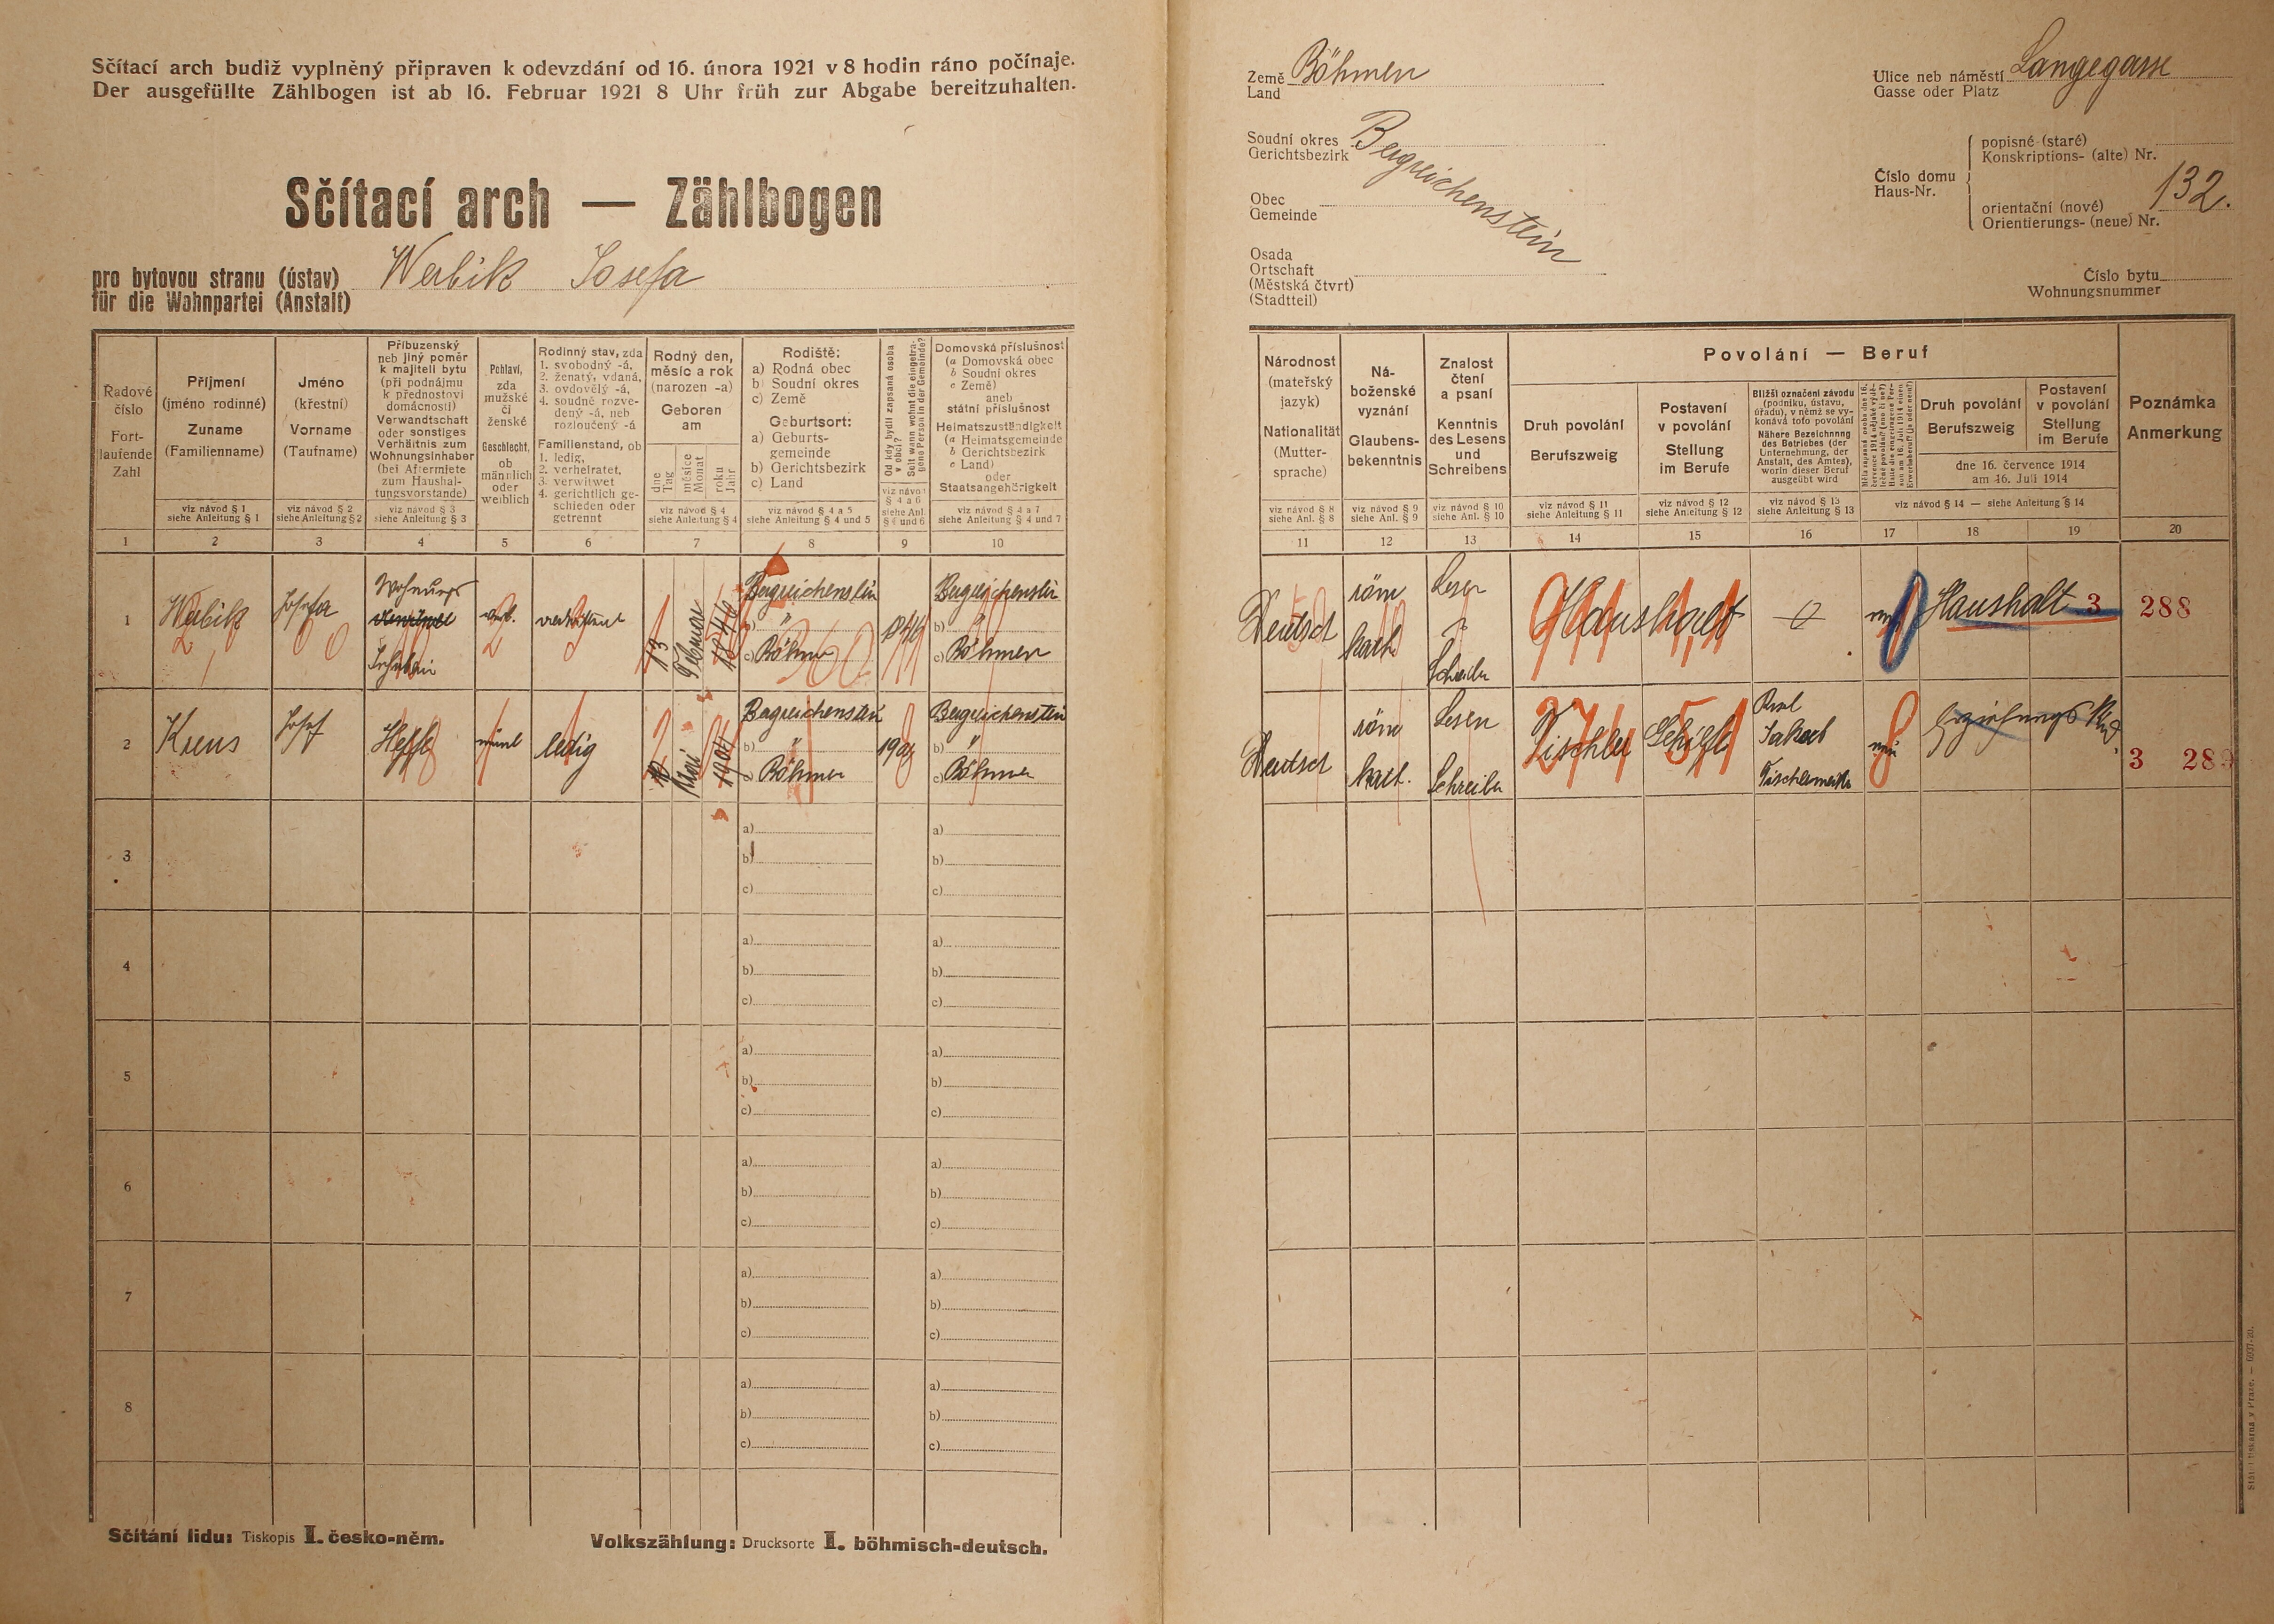 Sčítací arch budiž vyplněný připraven k odevzdání od 16. února 1921 v 8 hodin ráno počínaje.
Der ausgefüllte Zählbogen ist ab 16. Februar 1921 8 Uhr früh zur Abgabe bereitzuhalten.
Sčítací arch — Zählbogen
pro bytovou stranu (ústav)
für die Wohnpartei (Anstalt)
Werbik Josefa
Radové číslo
Fortlaufende Zahl
Příjmení
(jméno rodinné)
Zuname
(Familienname)
viz návod § 1
siehe Anleitung § 1
Jméno
(křestní)
Vorname
(Taufname)
viz návod § 2
siehe Anleitung § 2
Příbuzenský
neb jiný poměr
k majiteli bytu
(při podnájmu
k přednostovi
domácnosti)
Verwandtschaft
oder sonstiges
Verhältnis zum
Wohnungsinhaber
(bei Aftermiete
zum Haushal-
tungsvorstande)
viz návod § 3
siehe Anleitung § 3
Pohlaví,
zda
mužské
či
ženské
Geschlecht,
ob
männlich
oder
weiblich
Rodinný stav, zda
1. svobodný -á,
2. ženatý, vdaná,
3. ovdovělý -á,
4. soudně rozve-
dený -á, neb
rozloučený -á
Familienstand, ob
1. ledig,
2. verheiratet,
3. verwitwet
4. gerichtlich ge-
schieden oder
getrennt
Rodný den,
měsíc a rok
(narozen -a)
Geboren
am
dne
Tag
měsíce
Monat
roku
Jahr
viz návod § 4
siehe Anleitung § 4
Rodiště:
a) Rodná obec
b) Soudní okres
c) Země
Geburtsort:
a) Geburts-
gemeinde
b) Gerichtsbezirk
c) Land
viz návod § 4 a 5
siehe Anleitung § 4 und 5
Od kdy bydlí zapsaná osoba
v obci?
Seit wann wohnt die eingetra-
gene Person in der Gemeinde?
viz návod
§ 4 a 6
siehe Anl.
§ 4 und 6
Domovská příslušnost
(a Domovská obec
b Soudní okres
c Země)
aneb
státní příslušnost
Heimatszuständigkeit
(a Heimatsgemeinde
b Gerichtsbezirk
c Land)
oder
Staatsangehörigkeit
viz návod § 4 a 7
siehe Anleitung § 4 und 7
1 2 3 4 5 6 7 8 9 10
1 Werbik Josefa
Wohnungs
weib.
13 Februar 1846
Bergreichenstein
b) "
c) Böhmen
1846
Bergreichenstein
b) "
c) Böhmen
2 Josef
ledig
Mai 1904
Bergreichenstein
b) "
c) Böhmen
Bergreichenstein
b) "
c) Böhmen
3
a) a)
b) b)
c) c)
4
a) a)
b) b)
c) c)
5
a) a)
b) b)
c) c)
6
a) a)
b) b)
c) c)
7
a) a)
b) b)
c) c)
8
a) a)
b) b)
c) c)
Sčítání lidu: Tiskopis I. česko-něm.
Volkszählung: Drucksorte I. böhmisch-deutsch.
Země
Land
Böhmen
Soudní okres
Gerichtsbezirk
Bergreichenstein
Obec
Gemeinde
Osada
Ortschaft
(Městská čtvrť)
(Stadtteil)
Ulice neb náměstí
Gasse oder Platz
Langegasse
Číslo domu
Haus-Nr.
popisné (staré)
Konskriptions- (alte) Nr.
orientační (nové)
Orientierungs- (neue) Nr.
132.
Číslo bytu
Wohnungsnummer
Národnost
(mateřský
jazyk)
Nationalität
(Mutter-
sprache)
viz návod § 8
siehe Anl. § 8
Ná-
boženské
vyznání
Glaubens-
bekenntnis
viz návod § 9
siehe Anl. § 9
Znalost
čtení
a psaní
Kenntnis
des Lesens
und
Schreibens
viz návod § 10
siehe Anl. § 10
Povolání — Beruf
Druh povolání
Berufszweig
viz návod § 11
siehe Anleitung § 11
Postavení
v povolání
Stellung
im Berufe
viz návod § 12
siehe Anleitung § 12
Bližší označení závodu
(podniku, ústavu,
úřadu), v němž se vy-
konává toto povolání
Nähere Bezeichnung
des Betriebes (der
Unternehmung, der
Anstalt, des Amtes),
worin dieser Beruf
ausgeübt wird
viz návod § 13
siehe Anleitung § 13
Druh povolání
Berufszweig
Postavení
v povolání
Stellung
im Berufe
dne 16. července 1914
am 16. Juli 1914
viz návod § 14 — siehe Anleitung § 14
Poznámka
Anmerkung
11 12 13 14 15 16 17 18 19 20
Deutsch
röm
kath.
Lesen
Schreiben
Haushalt
Haushalt
3 288
Deutsch
röm
kath.
Lesen
Schreiben
Tischler
274
Tischlermeister
3 289
Státní tiskárna v Praze.